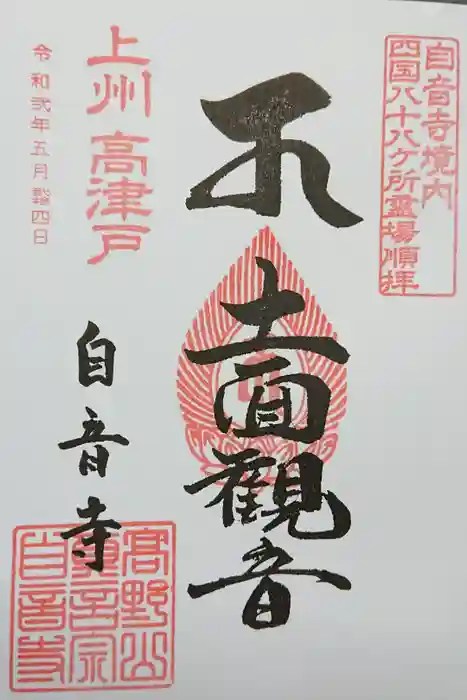 自音寺境内
四国八十八ケ所霊場順拝
十一面觀音
上州 高津戸
令和弐年五月 四日
自音寺
髙野山
真言宗
自音寺